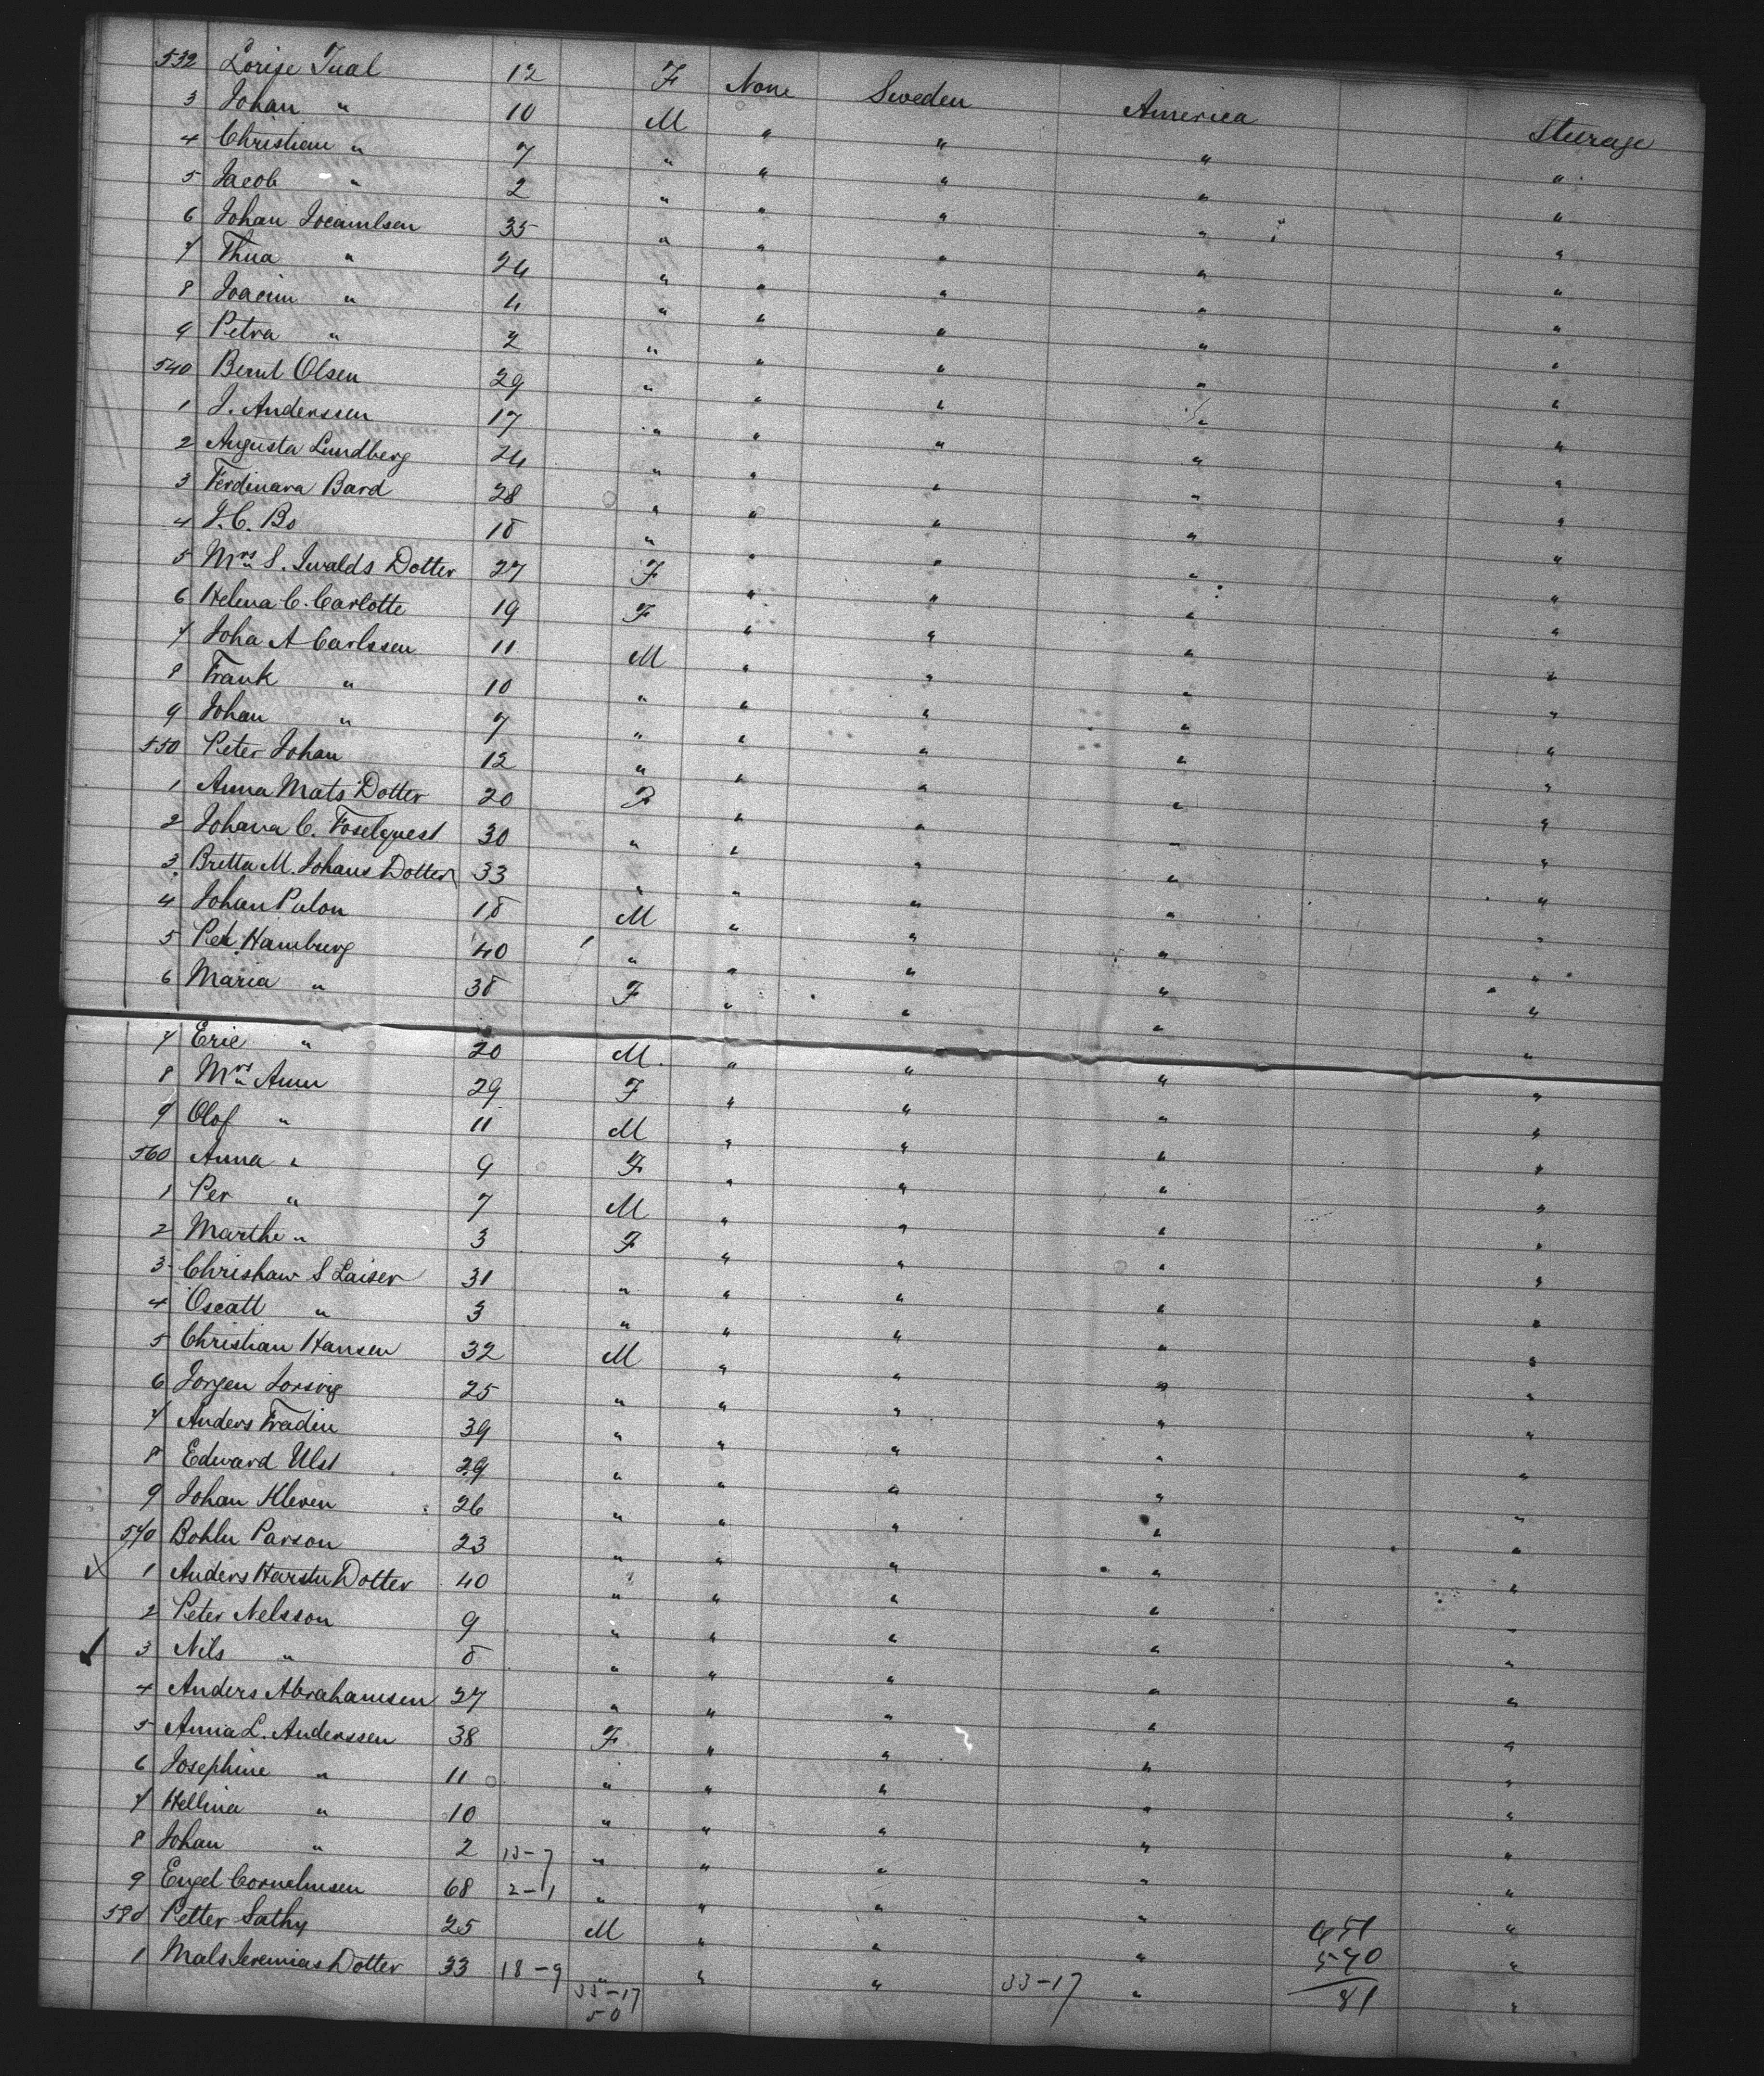 532 Lorise Tual 12 F None Sweden America Steerage
3 Johan " 10 M " " " "
4 Christian " 7 " " " " "
5 Jacob " 2 " " " " "
6 Johan 35 " " " " "
7 Thua " 24 " " " " "
8 Joacim " 4 " " " " "
9 Petra " 2 " " " " "
540 Bernt Olsen 29 " " " " "
1 J. Anderssen 17 " " " " "
2 Augusta Lundberg 24 " " " " "
3 Ferdinara Bard 28 " " " " "
4 J. C. Bo 18 " " " " "
5 Mrs S. Iwalds Dotter 27 F " " " "
6 Helena C. Carlotte 19 F " " " "
7 Joha A Carlssen 11 M " " " "
8 Frank " 10 " " " " "
9 Johan " 7 " " " " "
550 Peter Johan 12 " " " " "
1 Anna Mats Dotter 20 F " " " "
2 Johana C. Foselquest 30 " " " " "
3 Bretta M. Johans Dotter 33 " " " " "
4 Johan Pulon 18 M " " " "
5 Pet Hamburg 40 " " " " "
6 Maria " 38 F " " " "
7 Eric " 20 M " " " "
8 Mrs Ann 29 F " " " "
9 Olof " 11 M " " " "
560 Anna " 9 F " " " "
1 Per " 7 M " " " "
2 Marthe " 3 F " " " "
3 Chrishaw S Laiser 31 " " " " "
4 Oscatt " 3 " " " " "
5 Christian Hansen 32 M " " " "
6 Jorgen Jorsvig 25 " " " " "
7 Anders Fradin 39 " " " " "
8 Edward Ulst 29 " " " " "
9 Johan Kleven 26 " " " " "
570 Bohlu Parson 23 " " " " "
1 Anders Harstu Dotter 40 " " " " "
2 Peter Nelsson 9 " " " " "
3 Nils " 8 " " " " "
4 Anders Abrahamsen 27 " " " " "
5 Anna L. Anderssen 38 F " " " "
6 Josephine " 11 " " " " "
7 Hellina " 10 " " " " "
8 Johan " 2 15-7 " " " " "
9 Engel Cornelmsen 68 2-1 " " " " "
580 Petter Sathy 25 M " " " "
1 Mats Jeremias Dotter 33 18-9 " " " 33-17 " "
33-17
50
540
81